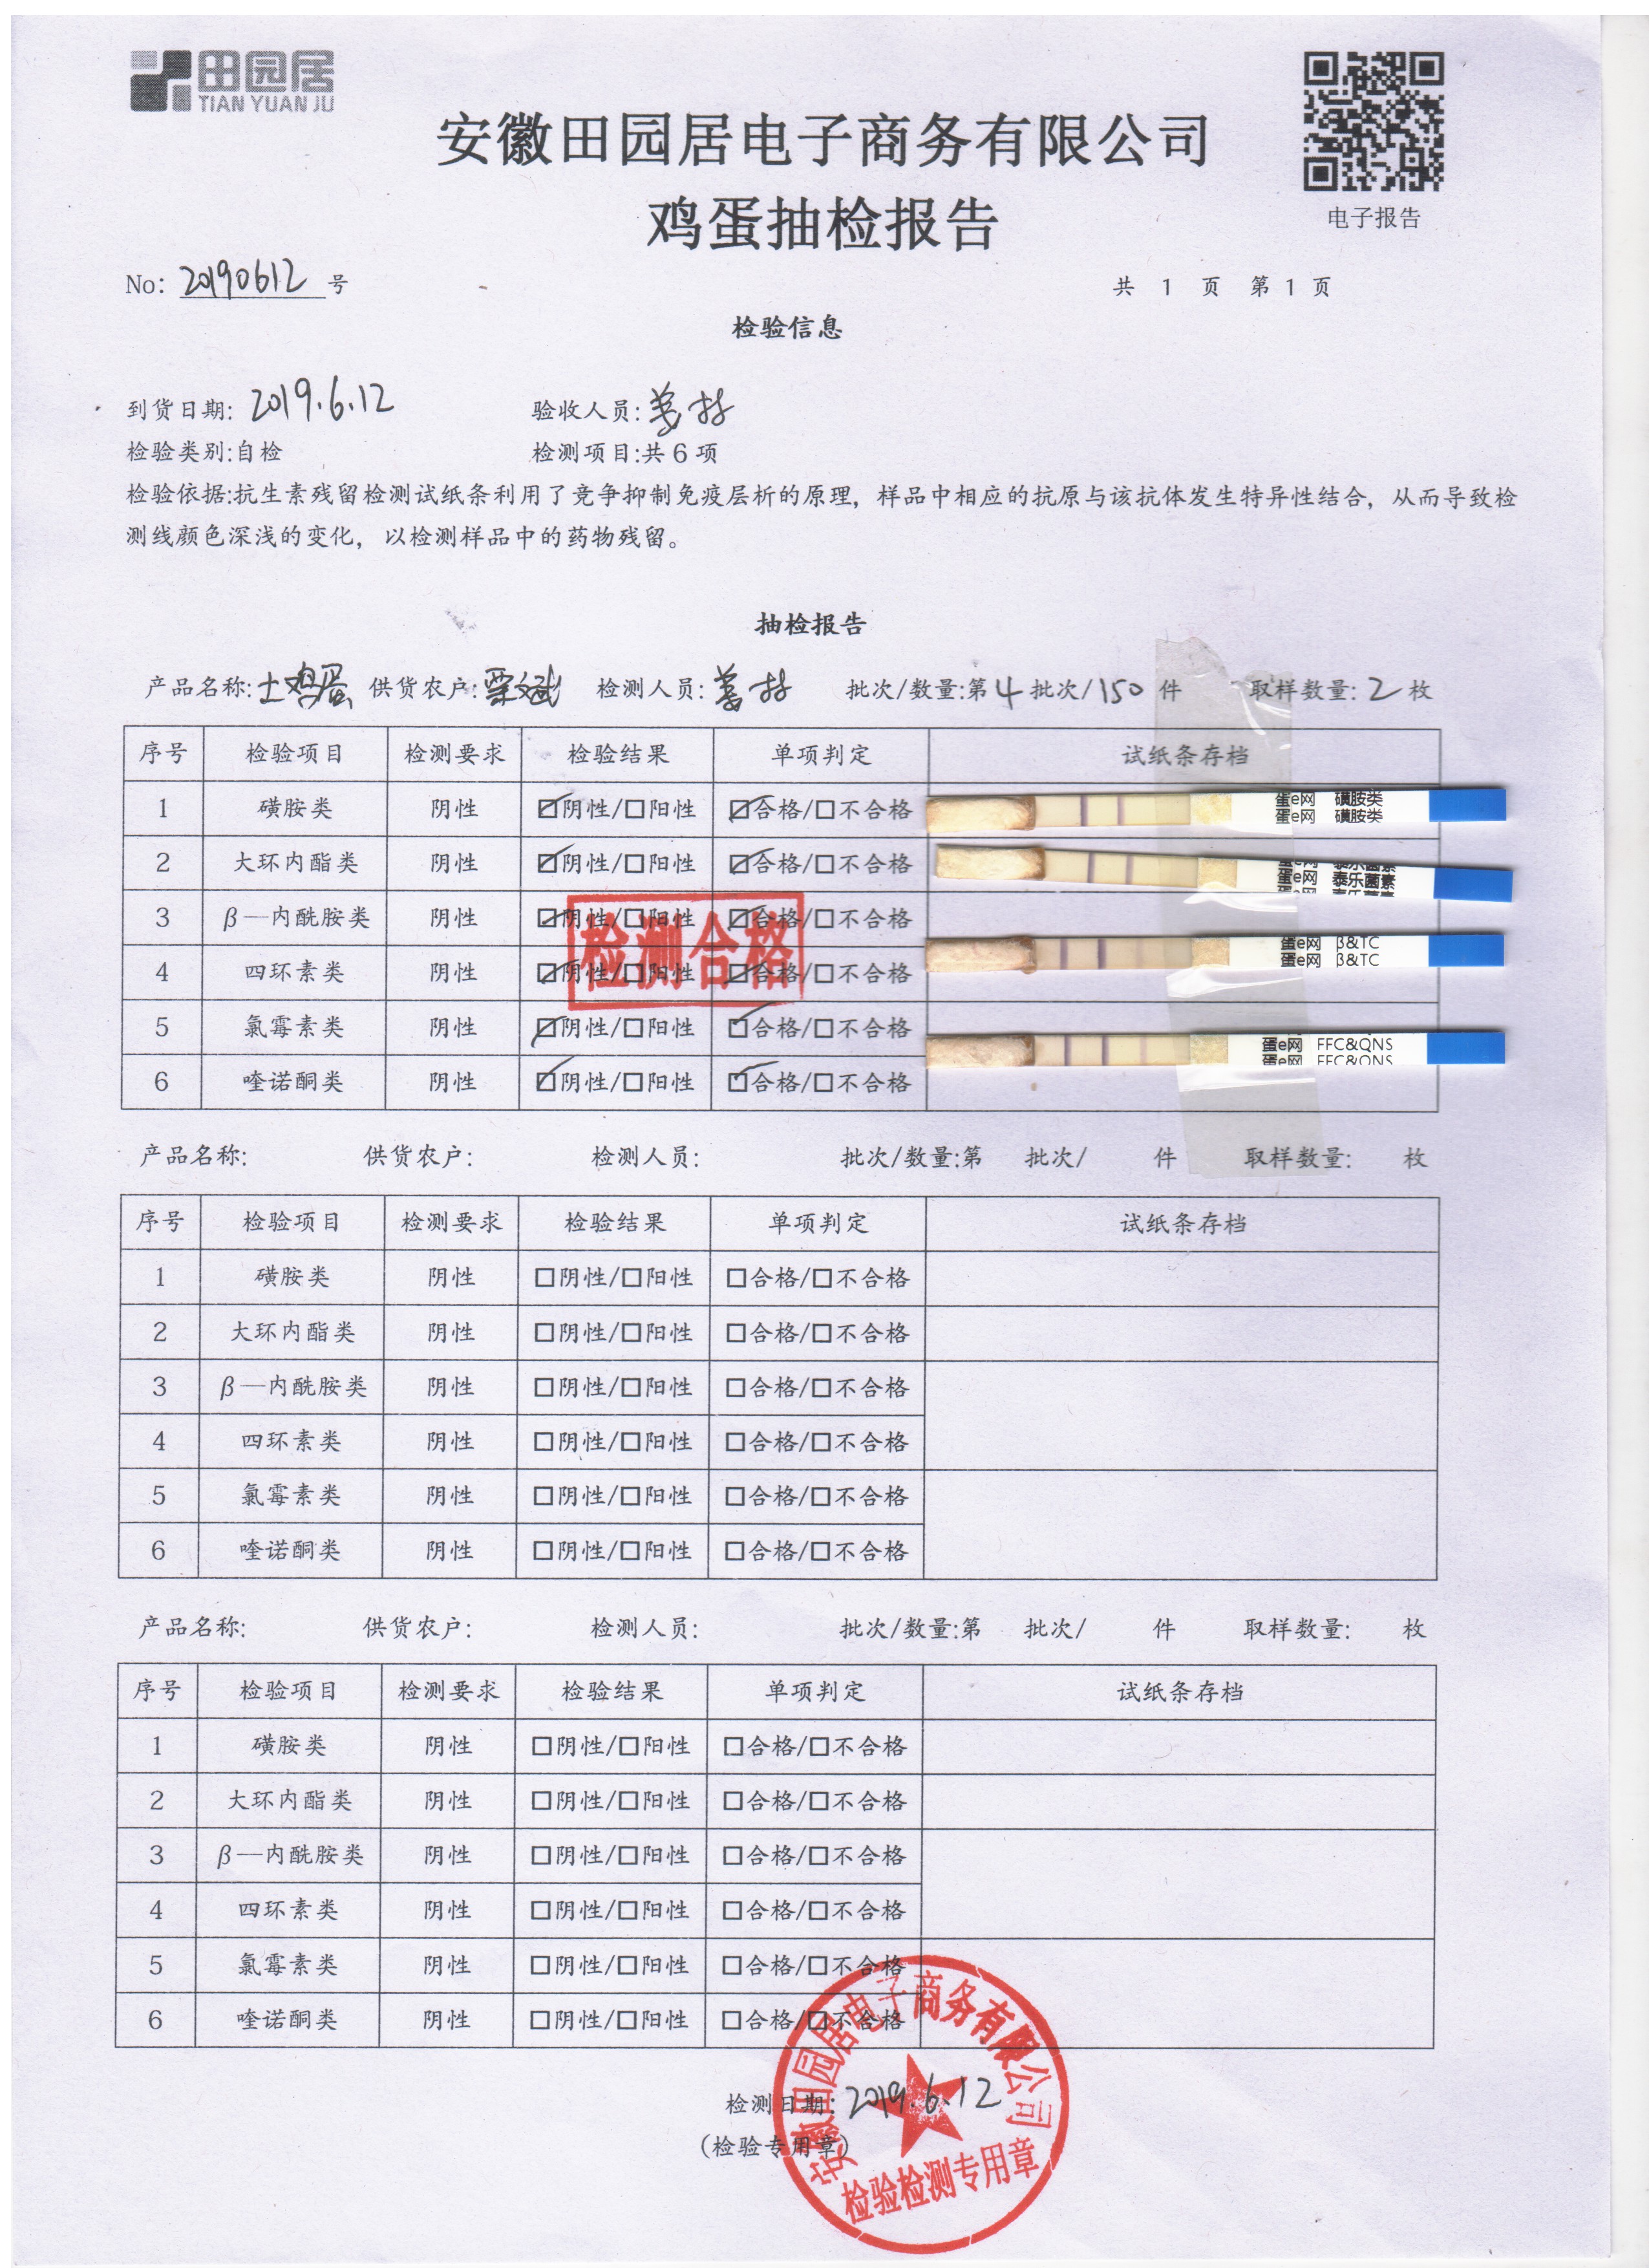 田园居
TIAN YUAN JU
安徽田园居电子商务有限公司
鸡蛋抽检报告
电子报告
No: 20190612 号
共 1 页 第 1 页
检验信息
到货日期: 2019.6.12 验收人员:
检验类别:自检 检测项目:共 6 项
检验依据:抗生素残留检测试纸条利用了竞争抑制免疫层析的原理，样品中相应的抗原与该抗体发生特异性结合，从而导致检
测线颜色深浅的变化，以检测样品中的药物残留。
抽检报告
产品名称:土鸡蛋 供货农户:栗斌 检测人员: 批次/数量:第4批次/150 件 取样数量: 2 枚
序号 检验项目 检测要求 检验结果 单项判定 试纸条存档
1 磺胺类 阴性 ☑阴性/☐阳性 ☑合格/☐不合格 蛋e网 磺胺类
蛋e网 磺胺类
2 大环内酯类 阴性 ☑阴性/☐阳性 ☑合格/☐不合格 蛋e网 泰乐菌素
3 β—内酰胺类 阴性 ☑阴性/☐阳性 ☑合格/☐不合格 蛋e网 β&TC
蛋e网 β&TC
检测合格
4 四环素类 阴性 ☑阴性/☐阳性 ☑合格/☐不合格
5 氯霉素类 阴性 ☑阴性/☐阳性 ☑合格/☐不合格 蛋e网 FFC&QNS
蛋e网 FFC&QNS
6 喹诺酮类 阴性 ☑阴性/☐阳性 ☑合格/☐不合格
产品名称: 供货农户: 检测人员: 批次/数量:第 批次/ 件 取样数量: 枚
序号 检验项目 检测要求 检验结果 单项判定 试纸条存档
1 磺胺类 阴性 ☐阴性/☐阳性 ☐合格/☐不合格
2 大环内酯类 阴性 ☐阴性/☐阳性 ☐合格/☐不合格
3 β—内酰胺类 阴性 ☐阴性/☐阳性 ☐合格/☐不合格
4 四环素类 阴性 ☐阴性/☐阳性 ☐合格/☐不合格
5 氯霉素类 阴性 ☐阴性/☐阳性 ☐合格/☐不合格
6 喹诺酮类 阴性 ☐阴性/☐阳性 ☐合格/☐不合格
产品名称: 供货农户: 检测人员: 批次/数量:第 批次/ 件 取样数量: 枚
序号 检验项目 检测要求 检验结果 单项判定 试纸条存档
1 磺胺类 阴性 ☐阴性/☐阳性 ☐合格/☐不合格
2 大环内酯类 阴性 ☐阴性/☐阳性 ☐合格/☐不合格
3 β—内酰胺类 阴性 ☐阴性/☐阳性 ☐合格/☐不合格
4 四环素类 阴性 ☐阴性/☐阳性 ☐合格/☐不合格
5 氯霉素类 阴性 ☐阴性/☐阳性 ☐合格/☐不合格
6 喹诺酮类 阴性 ☐阴性/☐阳性 ☐合格/☐不合格
检测日期: 2019.6.12
(检验专用章)
安徽田园居电子商务有限公司
检验检测专用章